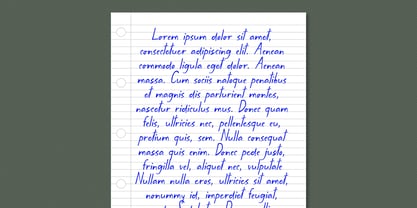 Lorem ipsum dolor sit amet,
consectetuer adipiscing elit. Aenean
commodo ligula eget dolor. Aenean
massa. Cum sociis natoque penatibus
et magnis dis parturient montes,
nascetur ridiculus mus. Donec quam
felis, ultricies nec, pellentesque eu,
pretium quis, sem. Nulla consequat
massa quis enim. Donec pede justo,
fringilla vel, aliquet nec, vulputate
Nullam nulla eros, ultricies sit amet,
nonummy id, imperdiet feugiat,